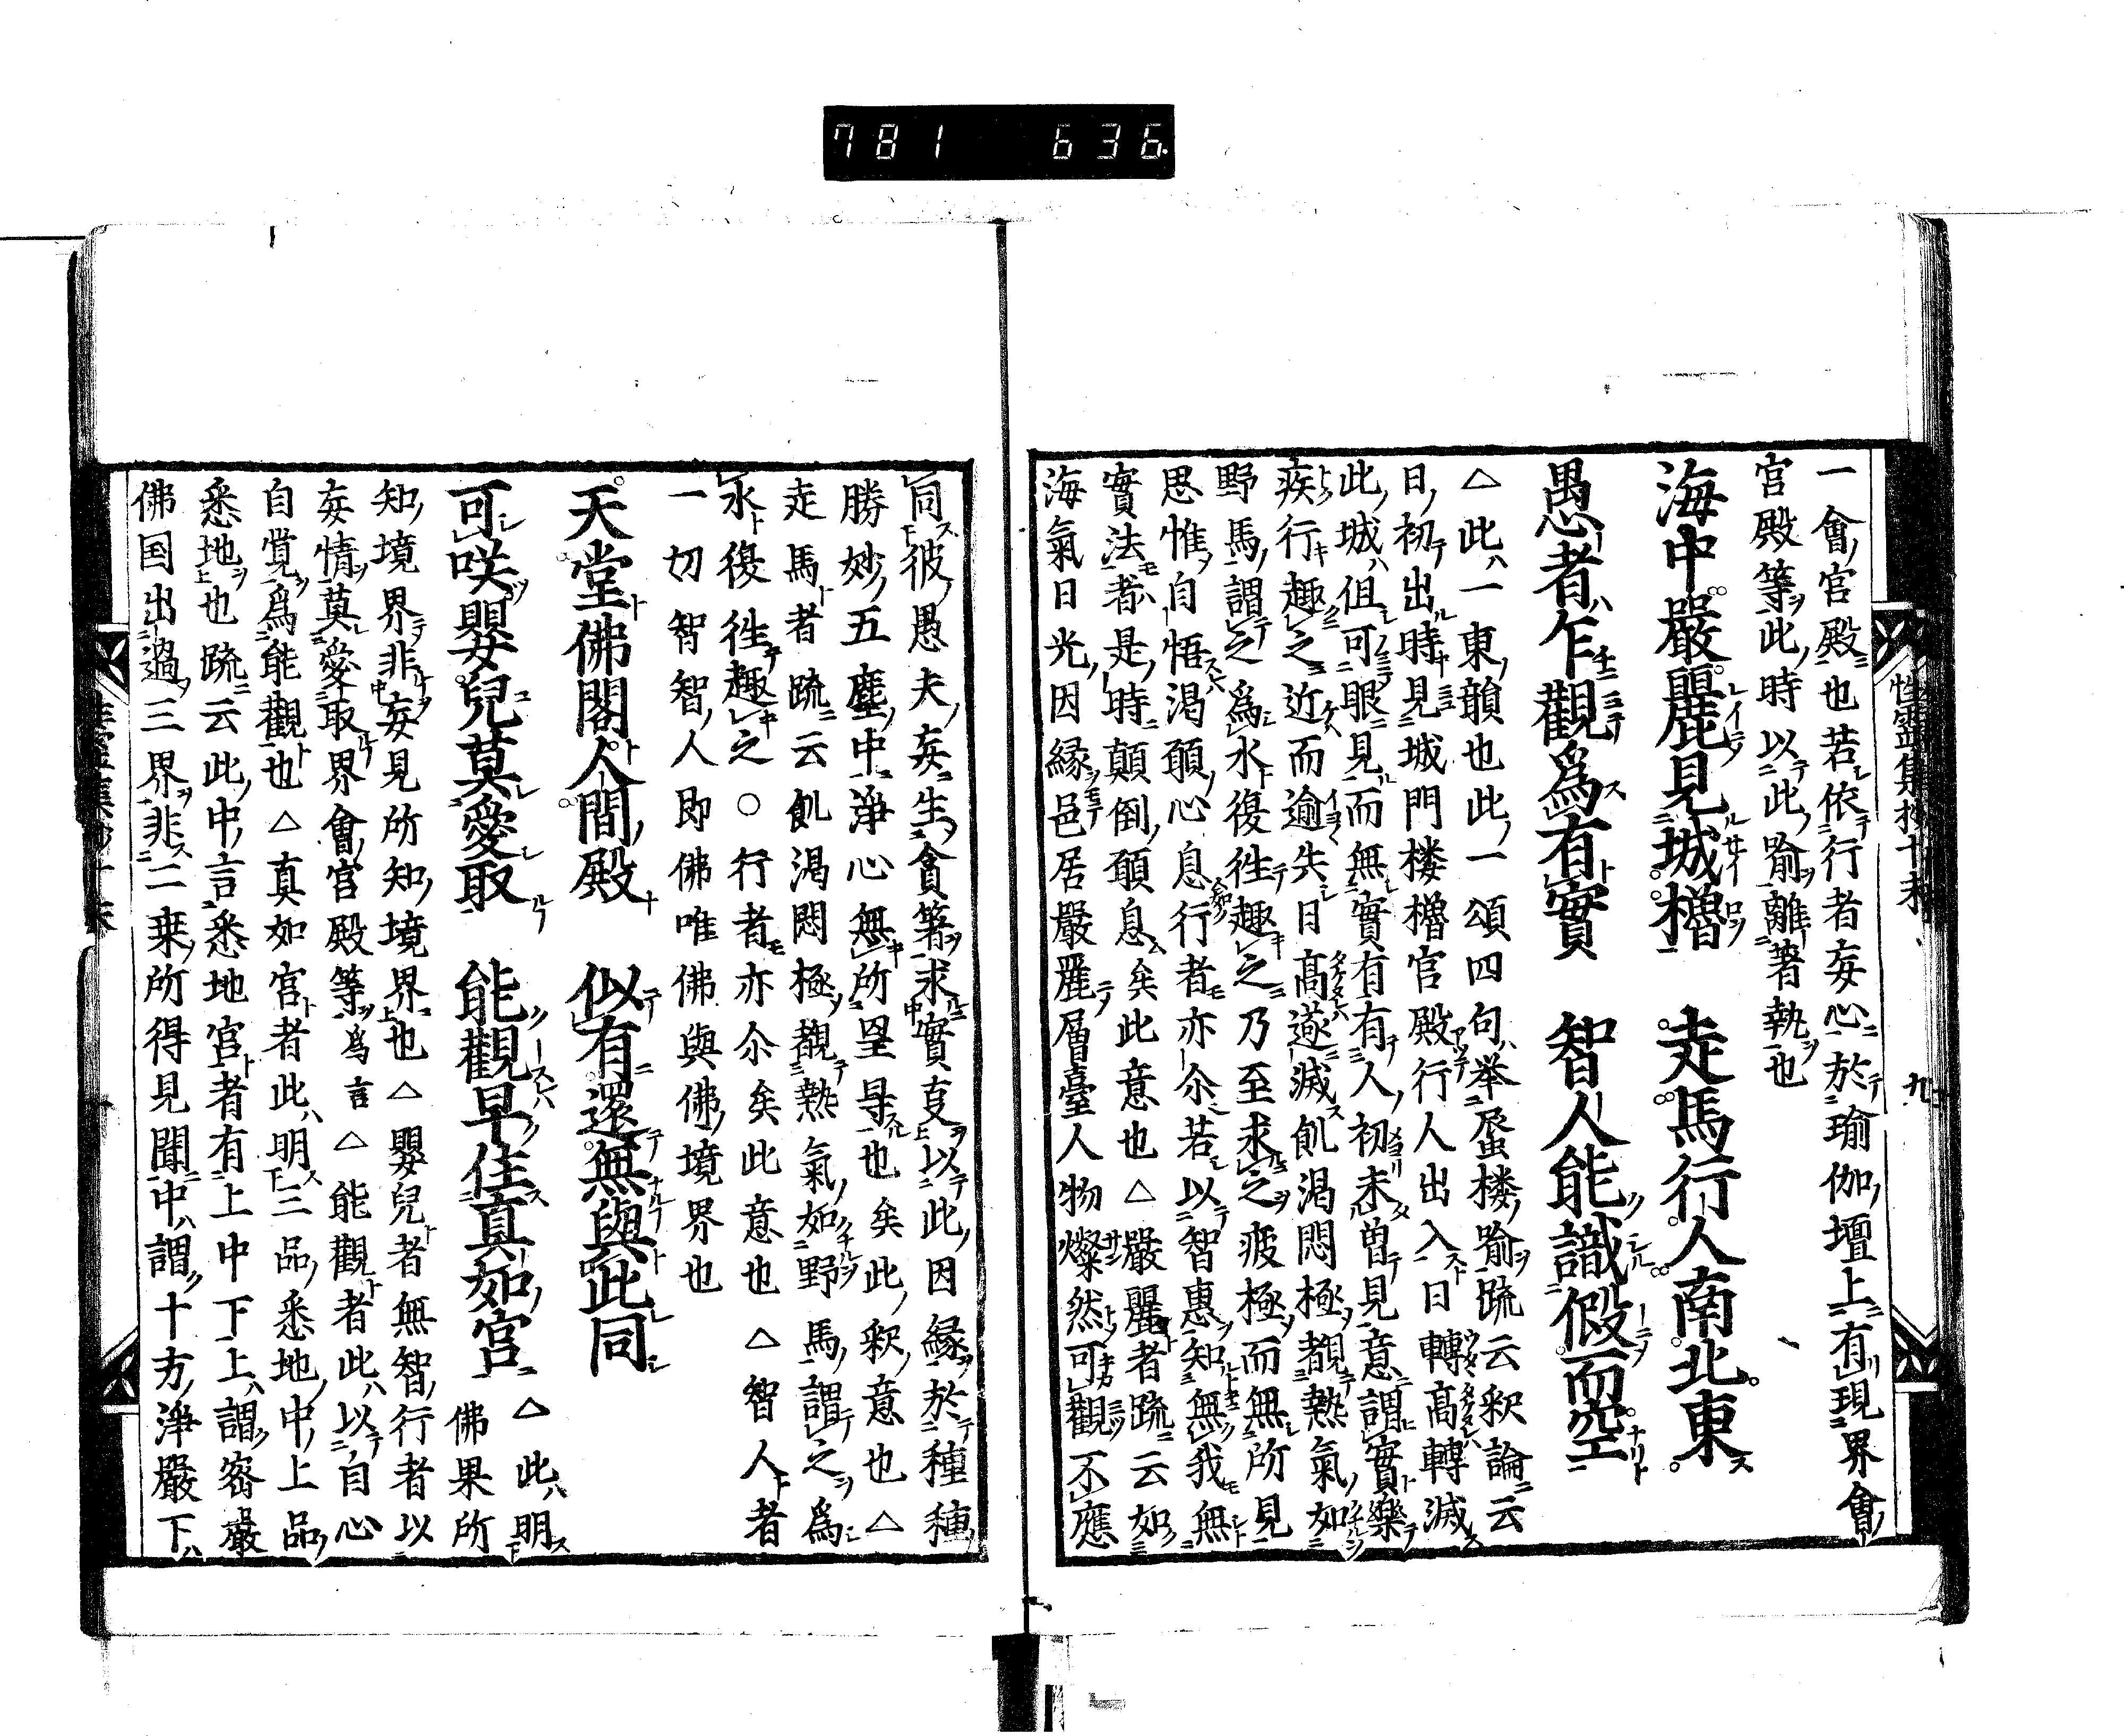 781 636
一會官殿也若依行者妄心於瑜伽壇上有現界會
宮殿等此時以此喻離著執也
海中嚴麗見城櫓 走馬行人南北東
愚者乍觀爲有實 智人能識假而空
△此一東韻也此一頌四句举蜃楼喻疏云釈論云
日初出時見城門楼櫓官殿行人出入日轉高轉滅
此城但可眼見而無實有有人初未曽見意謂實樂
疾行趣之近而逾失日高遂滅飢渴悶極覩熱氣如
野馬謂之為水復往趣之乃至求之疲極而無所見
思惟自悟渴願心息行者亦尒若以智惠知無我無
實法者是時顛倒願息矣此意也△嚴麗者疏云如
海氣日光因縁邑居嚴麗層臺人物燦然可觀不應
性霊集抄十末 九
同彼愚夫妄生貪著求實叓以此因縁於種種
勝妙五塵中淨心無所罣㝵也矣此釈意也△
走馬者疏云飢渴悶極覩熱氣如野馬謂之為
水復往趣之○行者亦尒矣此意也△智人者
一切智智人即佛唯佛與佛境界也
天堂佛閣人間殿 似有還無與此同
可咲嬰兒莫愛取 能觀早住真如宮 △此明
佛果所
知境界非妄見所知境界也△嬰兒者無智行者以
妄情莫愛取界會官殿等為言△能觀者此以自心
自覚為能觀也△真如宮者此明三品悉地中上品
悉地也疏云此中言悉地宮者有上中下上謂密嚴
佛国出過三界非二乗所得見聞中謂十方淨嚴下